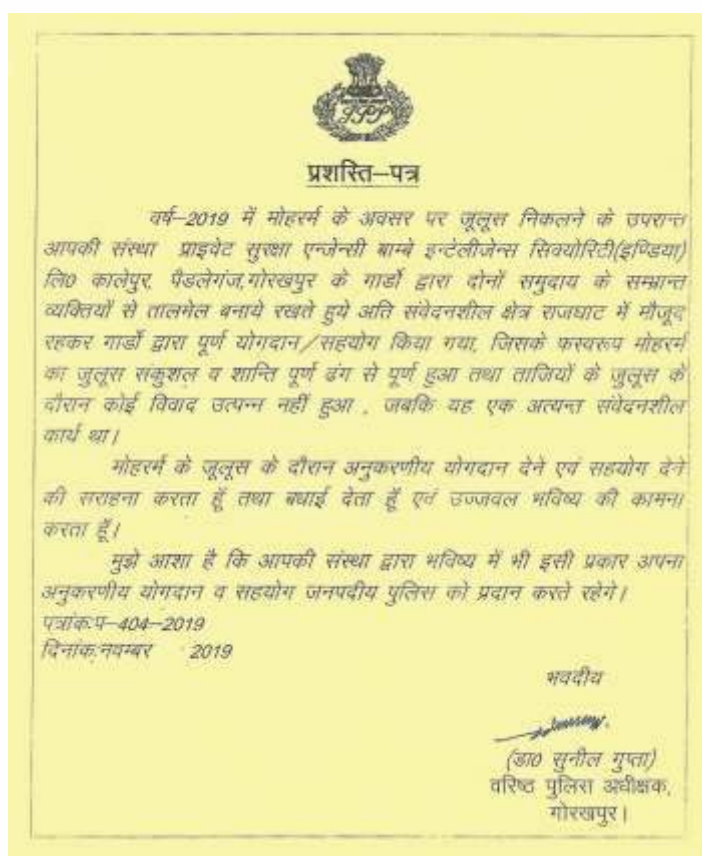 प्रशस्ति–पत्र
वर्ष–2019 में मोहरर्म के अवसर पर जूलूस निकलने के उपरान्त
आपकी संस्था प्राइवेट सुरक्षा एन्जेन्सी बाम्बे इन्टेलीजेन्स सिक्योरिटी(इण्डिया)
लि0 कालेपुर, पैडलेगंज,गोरखपुर के गार्डो द्वारा दोनों समुदाय के सम्भ्रान्त
व्यक्तियों से तालमेल बनाये रखते हुये अति संवेदनशील क्षेत्र राजघाट में मौजूद
रहकर गार्डो द्वारा पूर्ण योगदान/सहयोग किया गया, जिसके फस्वरूप मोहरर्म
का जुलूस सकुशल व शान्ति पूर्ण ढंग से पूर्ण हुआ तथा ताजियों के जुलूस के
दौरान कोई विवाद उत्पन्न नहीं हुआ , जबकि यह एक अत्यन्त संवेदनशील
कार्य था।
मोहरर्म के जूलूस के दौरान अनुकरणीय योगदान देने एवं सहयोग देने
की सराहना करता हूँ तथा बधाई देता हूँ एवं उज्जवल भविष्य की कामना
करता हूँ।
मुझे आशा है कि आपकी संस्था द्वारा भविष्य में भी इसी प्रकार अपना
अनुकरणीय योगदान व सहयोग जनपदीय पुलिस को प्रदान करते रहेगे।
पत्रांक:प–404–2019
दिनांक:नवम्बर 2019
भवदीय
(डा0 सुनील गुप्ता)
वरिष्ठ पुलिस अधीक्षक,
गोरखपुर।